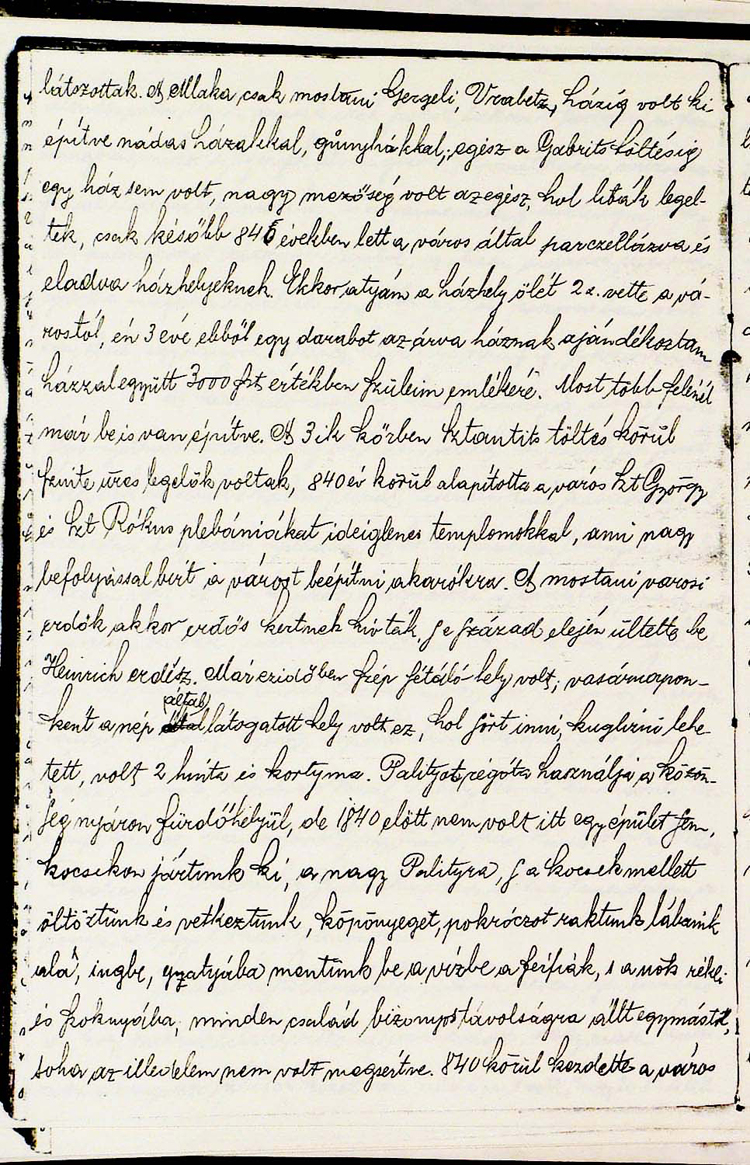 látszottak. A Mlaka csak mostani Gergeli, Vrabetz, házig volt ki
építve nádas házakkal, gúnyhákkal, egész a Gabrits töltésig
egy ház sem volt, nagy mezőség volt az egész, hol libák legel-
tek, csak később 845 években lett a város által parczellázva és
eladva házhelyeknek. Ekkor atyám a házhely ölét 2 x. vette a vá-
rostól, én 3 éve ebből egy darabot az árva háznak ajándékoztam
házzal együtt 3000 frt értékben szüleim emlékére. Most több felénél
már be is van építve. A 3ik körben Sztantits töltés körül
szinte üres legelők voltak, 840 év körül alapította a város Szt György
és Szt Rókus plebániákat ideiglenes templomokkal, ami nagy
befolyással birt a várost beépítni akarókra. A mostani városi
erdők akkor erdős kertnek hívták, s e század elején ültette be
Heinrich erdész. Már ez időben szép sétáló hely volt, vasárnapon-
ként a nép által látogatott hely volt ez, hol sört inni, kuglizni lehe-
tett, volt 2 hinta és kortyma. Palityot régóta használja a közön-
ség nyáron fürdőhelyül, de 1840 előtt nem volt itt egy épület sem,
kocsikon jártunk ki, a nagy Palityra, s a kocsik mellett
öltöztünk és vetkeztünk, köpönyeget, pokróczot raktunk lábaink
alá, ingbe, gatyába mentünk be a vízbe a férfiak, s a nők rékli
és szoknyába, minden család bizonyos távolságra állt egymástól,
soha az illedelem nem volt megsértve. 840 körül kezdette a város